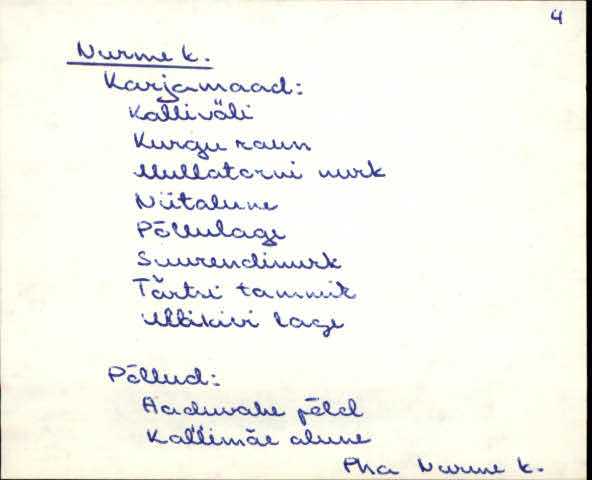 4
Nurme k.
Karjamaad:
Kalliväli
Kurgu raun
Mullatorni nurk
Niitalune
Põllulage
Suurendinurk
Tärtsi tammik
Ullikivi lage
Põllud:
Aaduvahe põld
Kallimäe alune
Pha Nurme k.